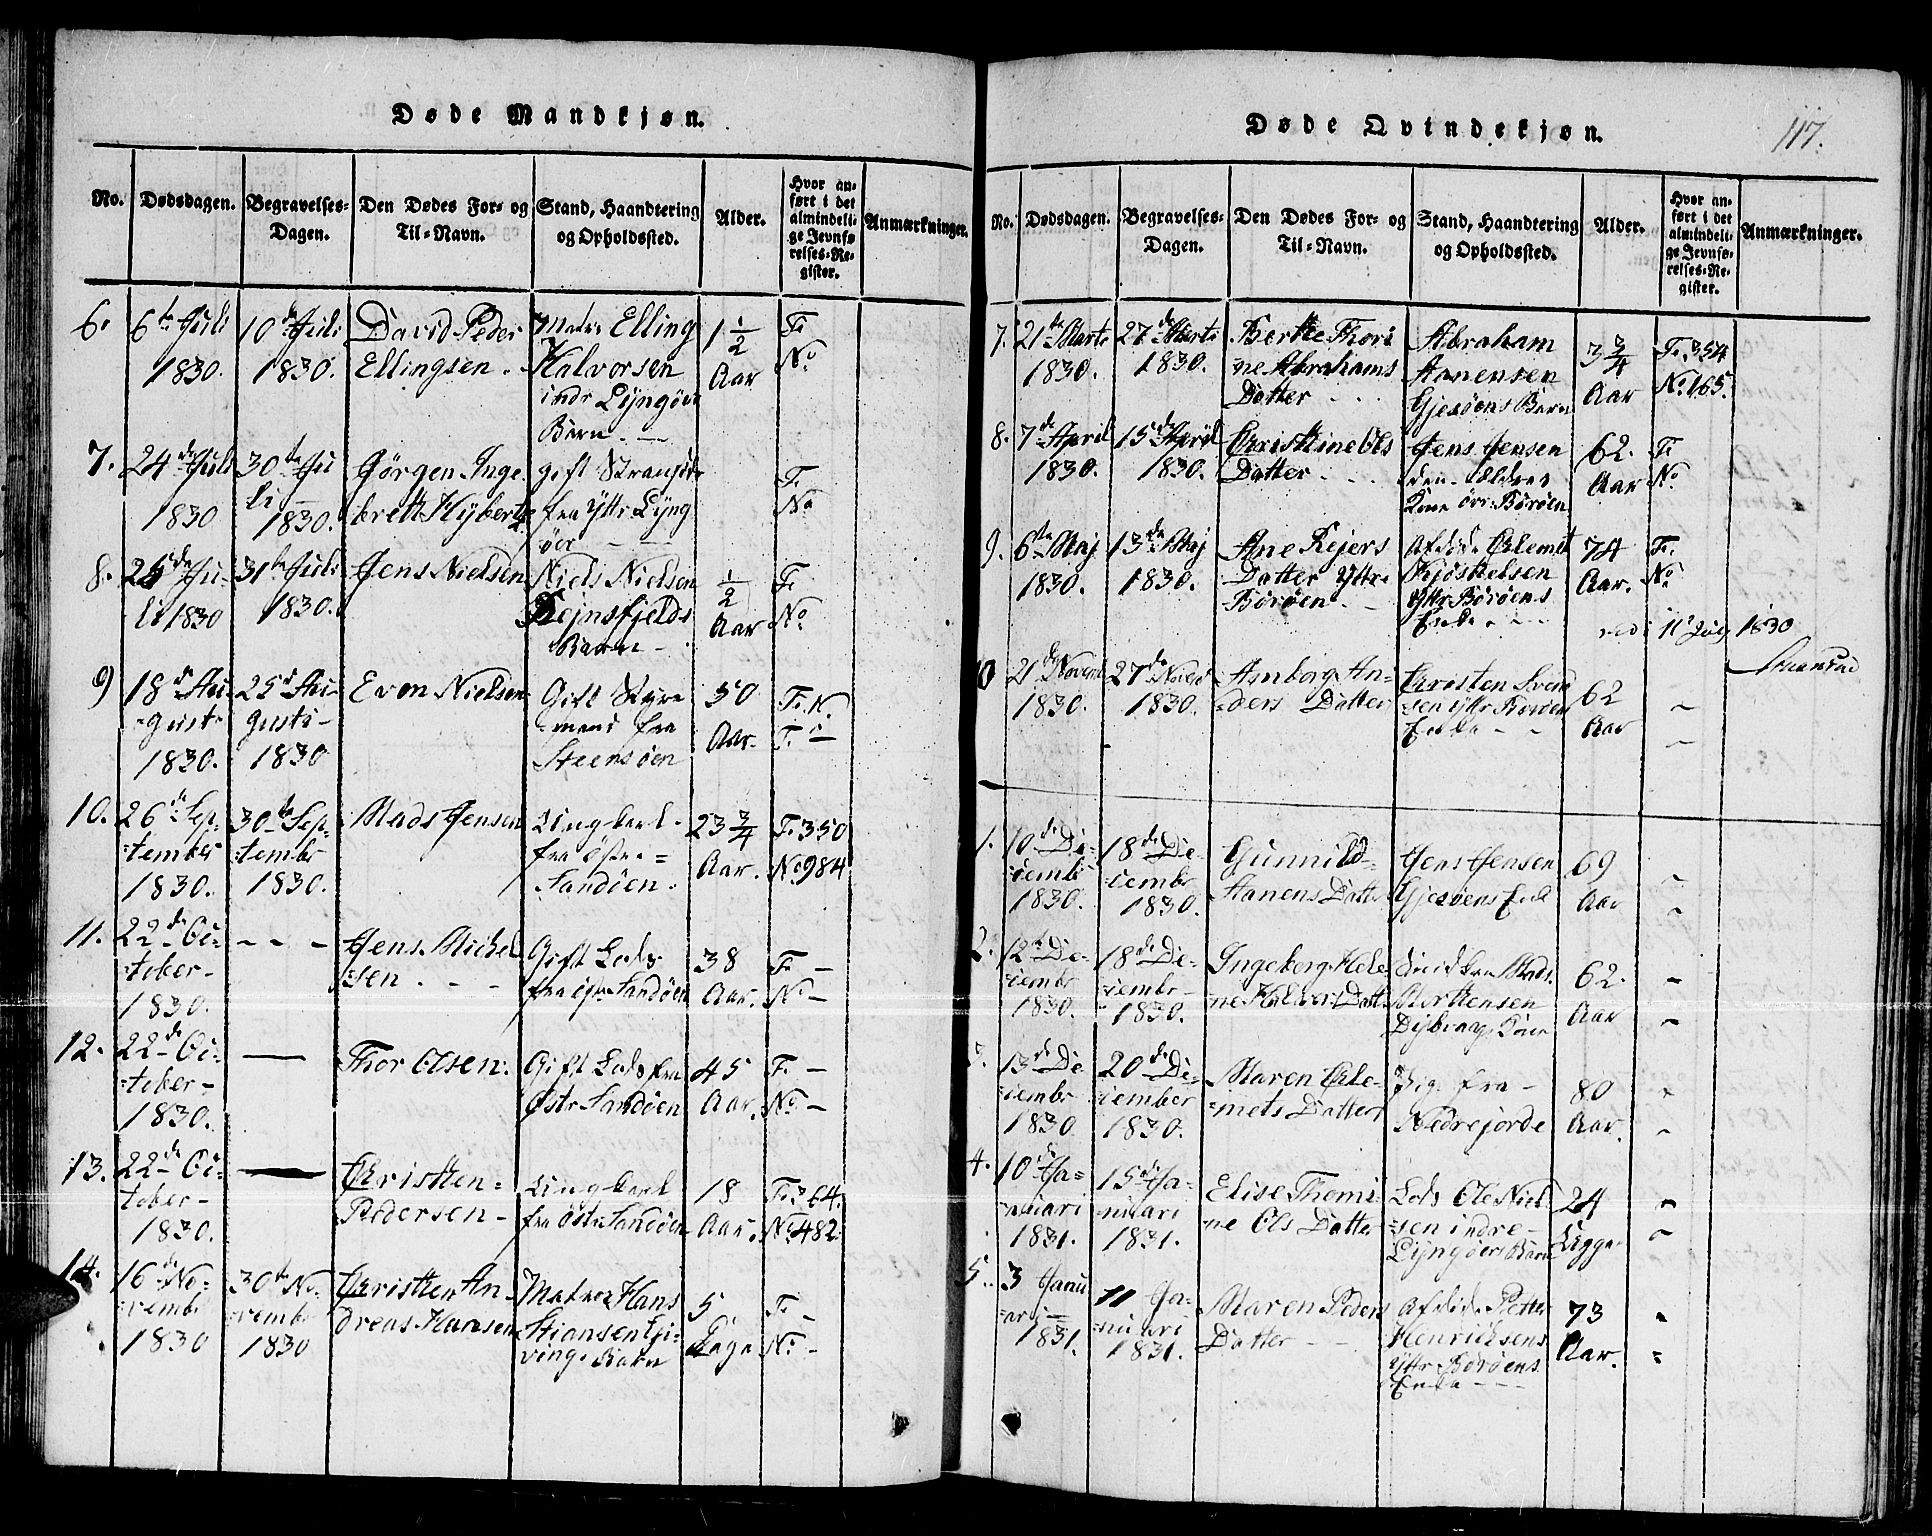 Døde Mandkjøn.
No.
Dødsdagen.
Begravelses-
Dagen.
Den Dødes For- og
Til-Navn.
Stand, Haandtering
og Opholdssted.
Alder.
Hvor an-
ført i det
almindeli-
ge Jevnfø-
relses-Re-
gister.
Anmærkninger.
6.
6te Juli
1830.
10de Juli
1830.
David Peder
Ellingsen.
Elling
Halvorsen
indr Lyngöer
Barn.
1 1/2
Aar
F.
No
7.
24de Juli
1830
30te Ju
li
1830.
Jörgen Inge
brett
gift
fra Yttr Lyng
öer
F.
No
8.
Ju-
li 1830
31te Juli
1830.
Jens Nielsen
Niels Nielsen
Barn
1/2
Aar
F.
No
9
18de Au-
gust
1830.
25de Au-
gust
1830
Even Nielsen
Gift Styr-
mand fra
Steensöen
50
Aar.
F. N.
10.
26de Sep-
tember
1830.
30te Sep-
tembr
1830.
Mads Jensen
Ungkarl
fra östre
Sandöen.
23 3/4
Aar.
F. 350
No 984
11.
22de Oc-
tober
1830.
- - -
Jens Michel
sen
Gift Lods
fra östr Sandöen
38
Aar.
F. -
No -
12.
22de Oc-
tober
1830.
Thor Olsen.
Gift Lods fra
Östr Sandöen
45
Aar.
F. -
No -
13.
22de Oc-
tober
1830.
Christen
Pedersen
Ungkarl
fra Östr Sandöen
18
Aar.
F. 364.
No 482.
14.
16de No-
vembr
1830
30te No-
vembr
1830
Christen An
dreas Hansen
Matros Hans
Stiansen Gi-
ving Barn
5
Dage
F. -
No -
Døde Qvindekjøn.
117.
No.
Dødsdagen.
Begravelses-
Dagen.
Den Dødes For- og
Til-Navn.
Stand, Haandtering
og Opholdssted.
Alder.
Hvor an-
ført i det
almindeli-
ge Jevnfø-
relses-Re-
gister.
Anmærkninger.
7.
21de Marts
1830.
27de Marts
1830.
Berthe Thori
ne Abrahams
Datter
Abraham
Aanensen
Gjesöens Barn
3 3/4
Aar
F. 354
No 165.
8.
7de April
1830.
15de April
1830.
Christine Ols
Datter
Jens Jensen
den ældres
Kone övr. Böröen
62.
Aar
F.
No
9.
6te Maj
1830.
13de Maj
1830.
Ane Rejers
Datter Yttre
Böröen.
Afdöde Clemet
Kjöstelsen
Yttr Böröens
Enke
74
Aar.
F.
No
1830
10
21de Novembr
1830.
27de Novbr
1830.
Amborg An-
ders Datter
Christen Svend
sen Yttr Böröen
Enke
62
Aar
1.
10de De-
cembr
1830.
18de De-
cembr
1830.
Gunnild
Aanens Datter
Jens Jensen
Gjesöens Enke
69
Aar
2.
12te De-
cembr
1830.
18de De-
cembr
1830.
Ingeborg Hele-
ne Halvors Datt.
Mads
Morthensen
Dybvag
62.
Aar
3.
13de De
cembr
1830
20de De-
cember
1830.
Maren Cle-
mets Datter
Pige fra
Nedrejorde
80
Aar.
4.
10de Ja-
nuari
1831.
15de Ja-
nuari
1831.
Elise Thomi-
ne Ols Datter
Lods Ole Niel
sen indre
Lyngöer Barn
24
Uger
5.
3 Janu
ari
1831.
11 Ja-
nuari
1831.
Maren Peders
Datter
Afdöde Petter
Henricksens
Yttr Böröens
Enke
73
Aar.